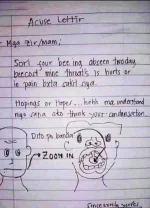 Acuse Lettir
Miga Sir/Mam;
Sori four bee ing abseen twoday
becost mine throat's is hurts or
in pain beta sakit siya.
Hopings or Hope/... both ma understand
niyo sana ako thank your consideration.
Dito po banda
ZOOM IN
Sincerely yours,